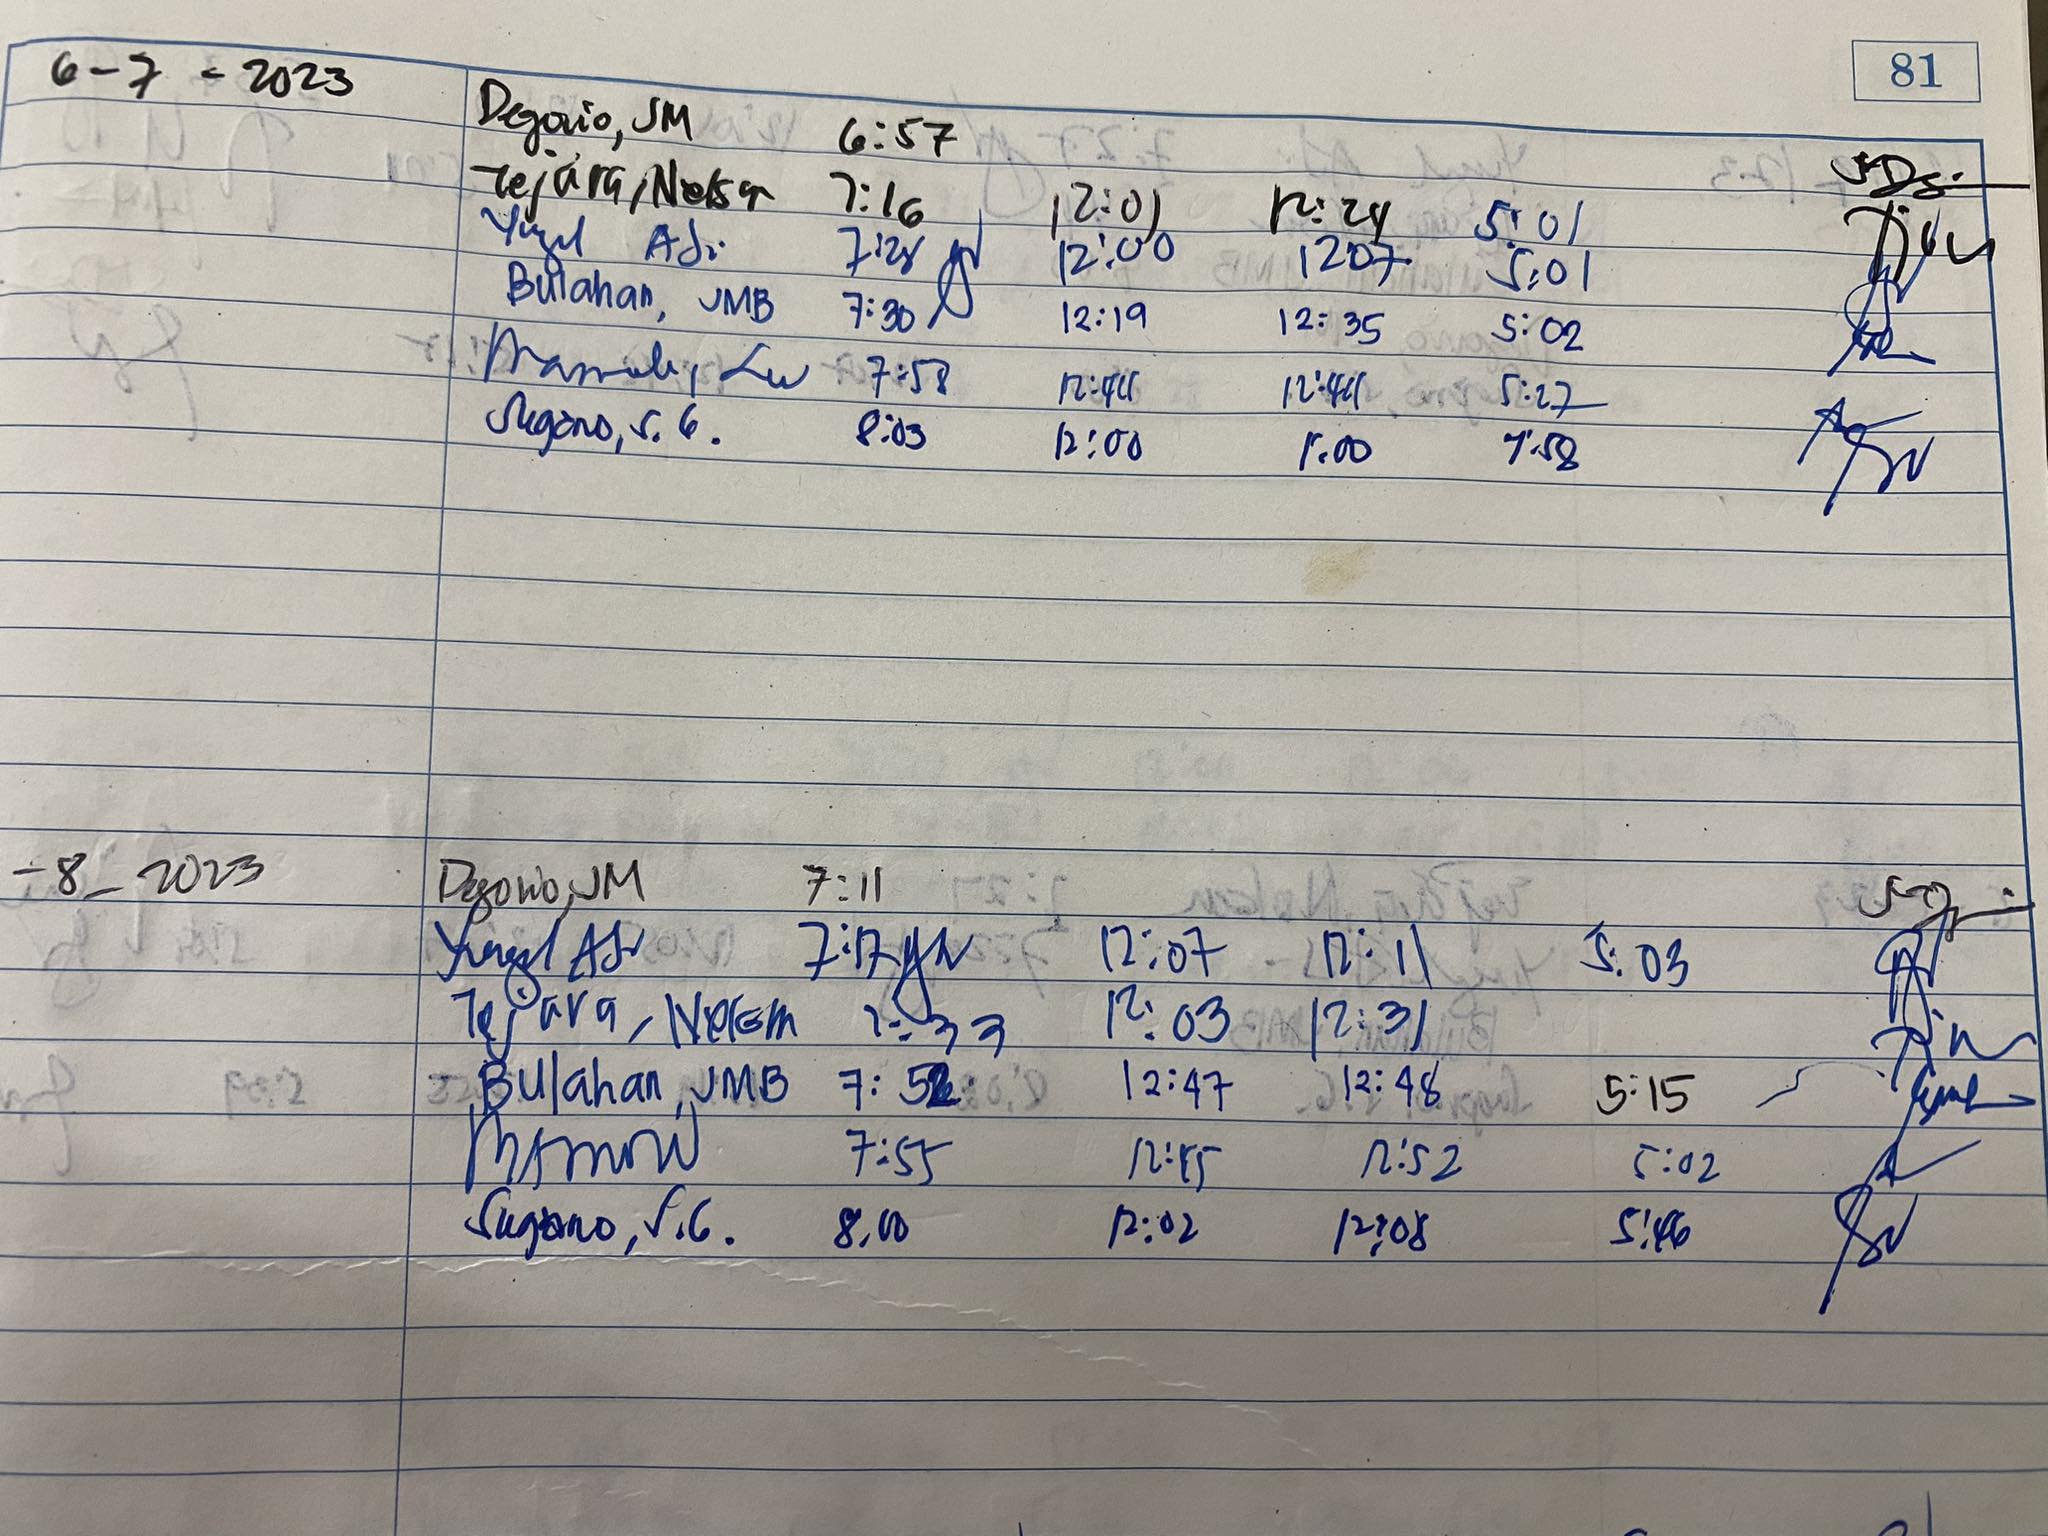 81
6-7-2023
Degorio, JM 6:57
Tejara, Nelson 7:16 12:01 12:24 5:01
7:28 12:00 1207 5:01
Bulahan, JMB 7:30 12:19 12:35 5:02
7:58 12:44 12:44 5:27
Sugano, S. G. 8:03 12:00 1:00 7:58
-8-2023
Degorio, JM 7:11
7:17 12:07 12:11 5:03
Tejara, Nelson 7:33 12:03 12:31
Bulahan, JMB 7:52 12:47 12:48 5:15
7:55 12:45 12:52 5:02
Sugano, S.G. 8:00 12:02 12:08 5:46